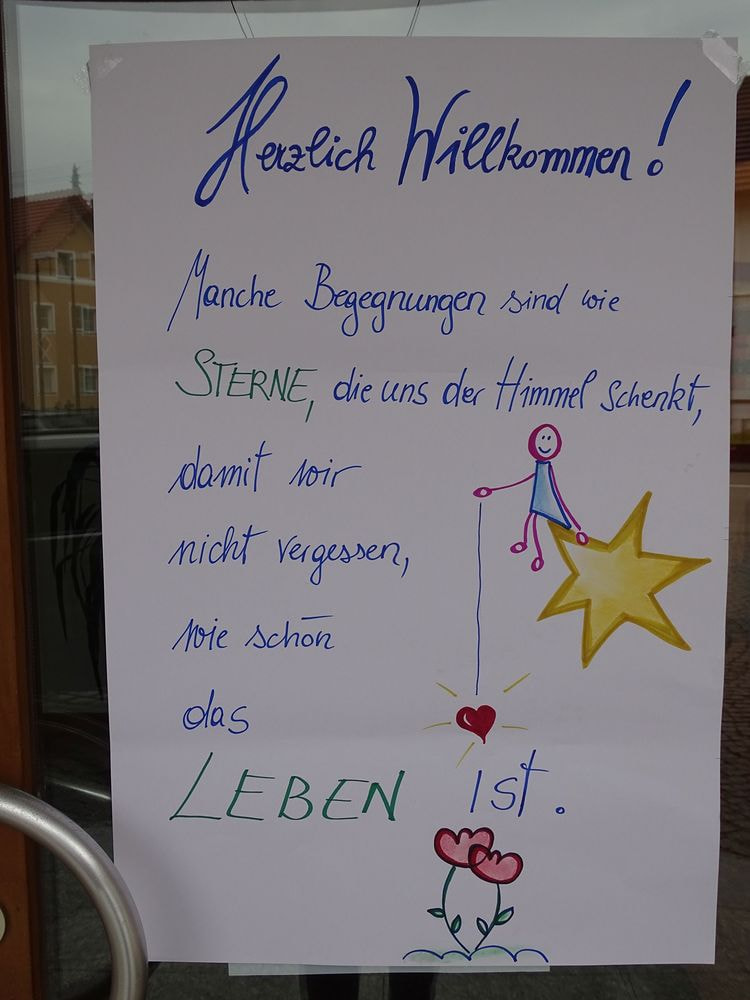 Herzlich Willkommen!
Manche Begegnungen sind wie
STERNE, die uns der Himmel schenkt,
damit wir
nicht vergessen,
wie schön
das
LEBEN ist.